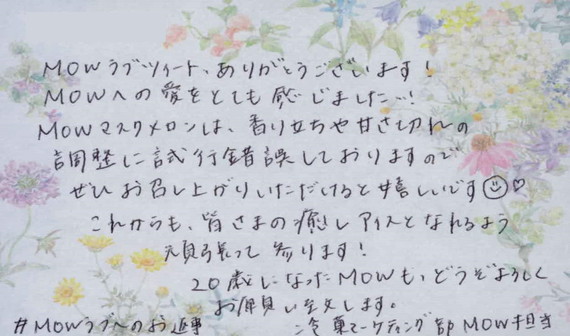 MOWラブツイート、ありがとうございます!
MOWへの愛をとても感じました…!
MOWマスクメロンは、香り立ちや甘さ切れの
調整に試行錯誤しておりますので
ぜひお召し上がりいただけると嬉しいです☺♡
これからも、皆さまの癒しアイスとなれるよう
頑張って参ります!
20歳になったMOWも、どうぞよろしく
お願い致します。
#MOWラブへのお返事
冷凍マーケティング部 MOW担当